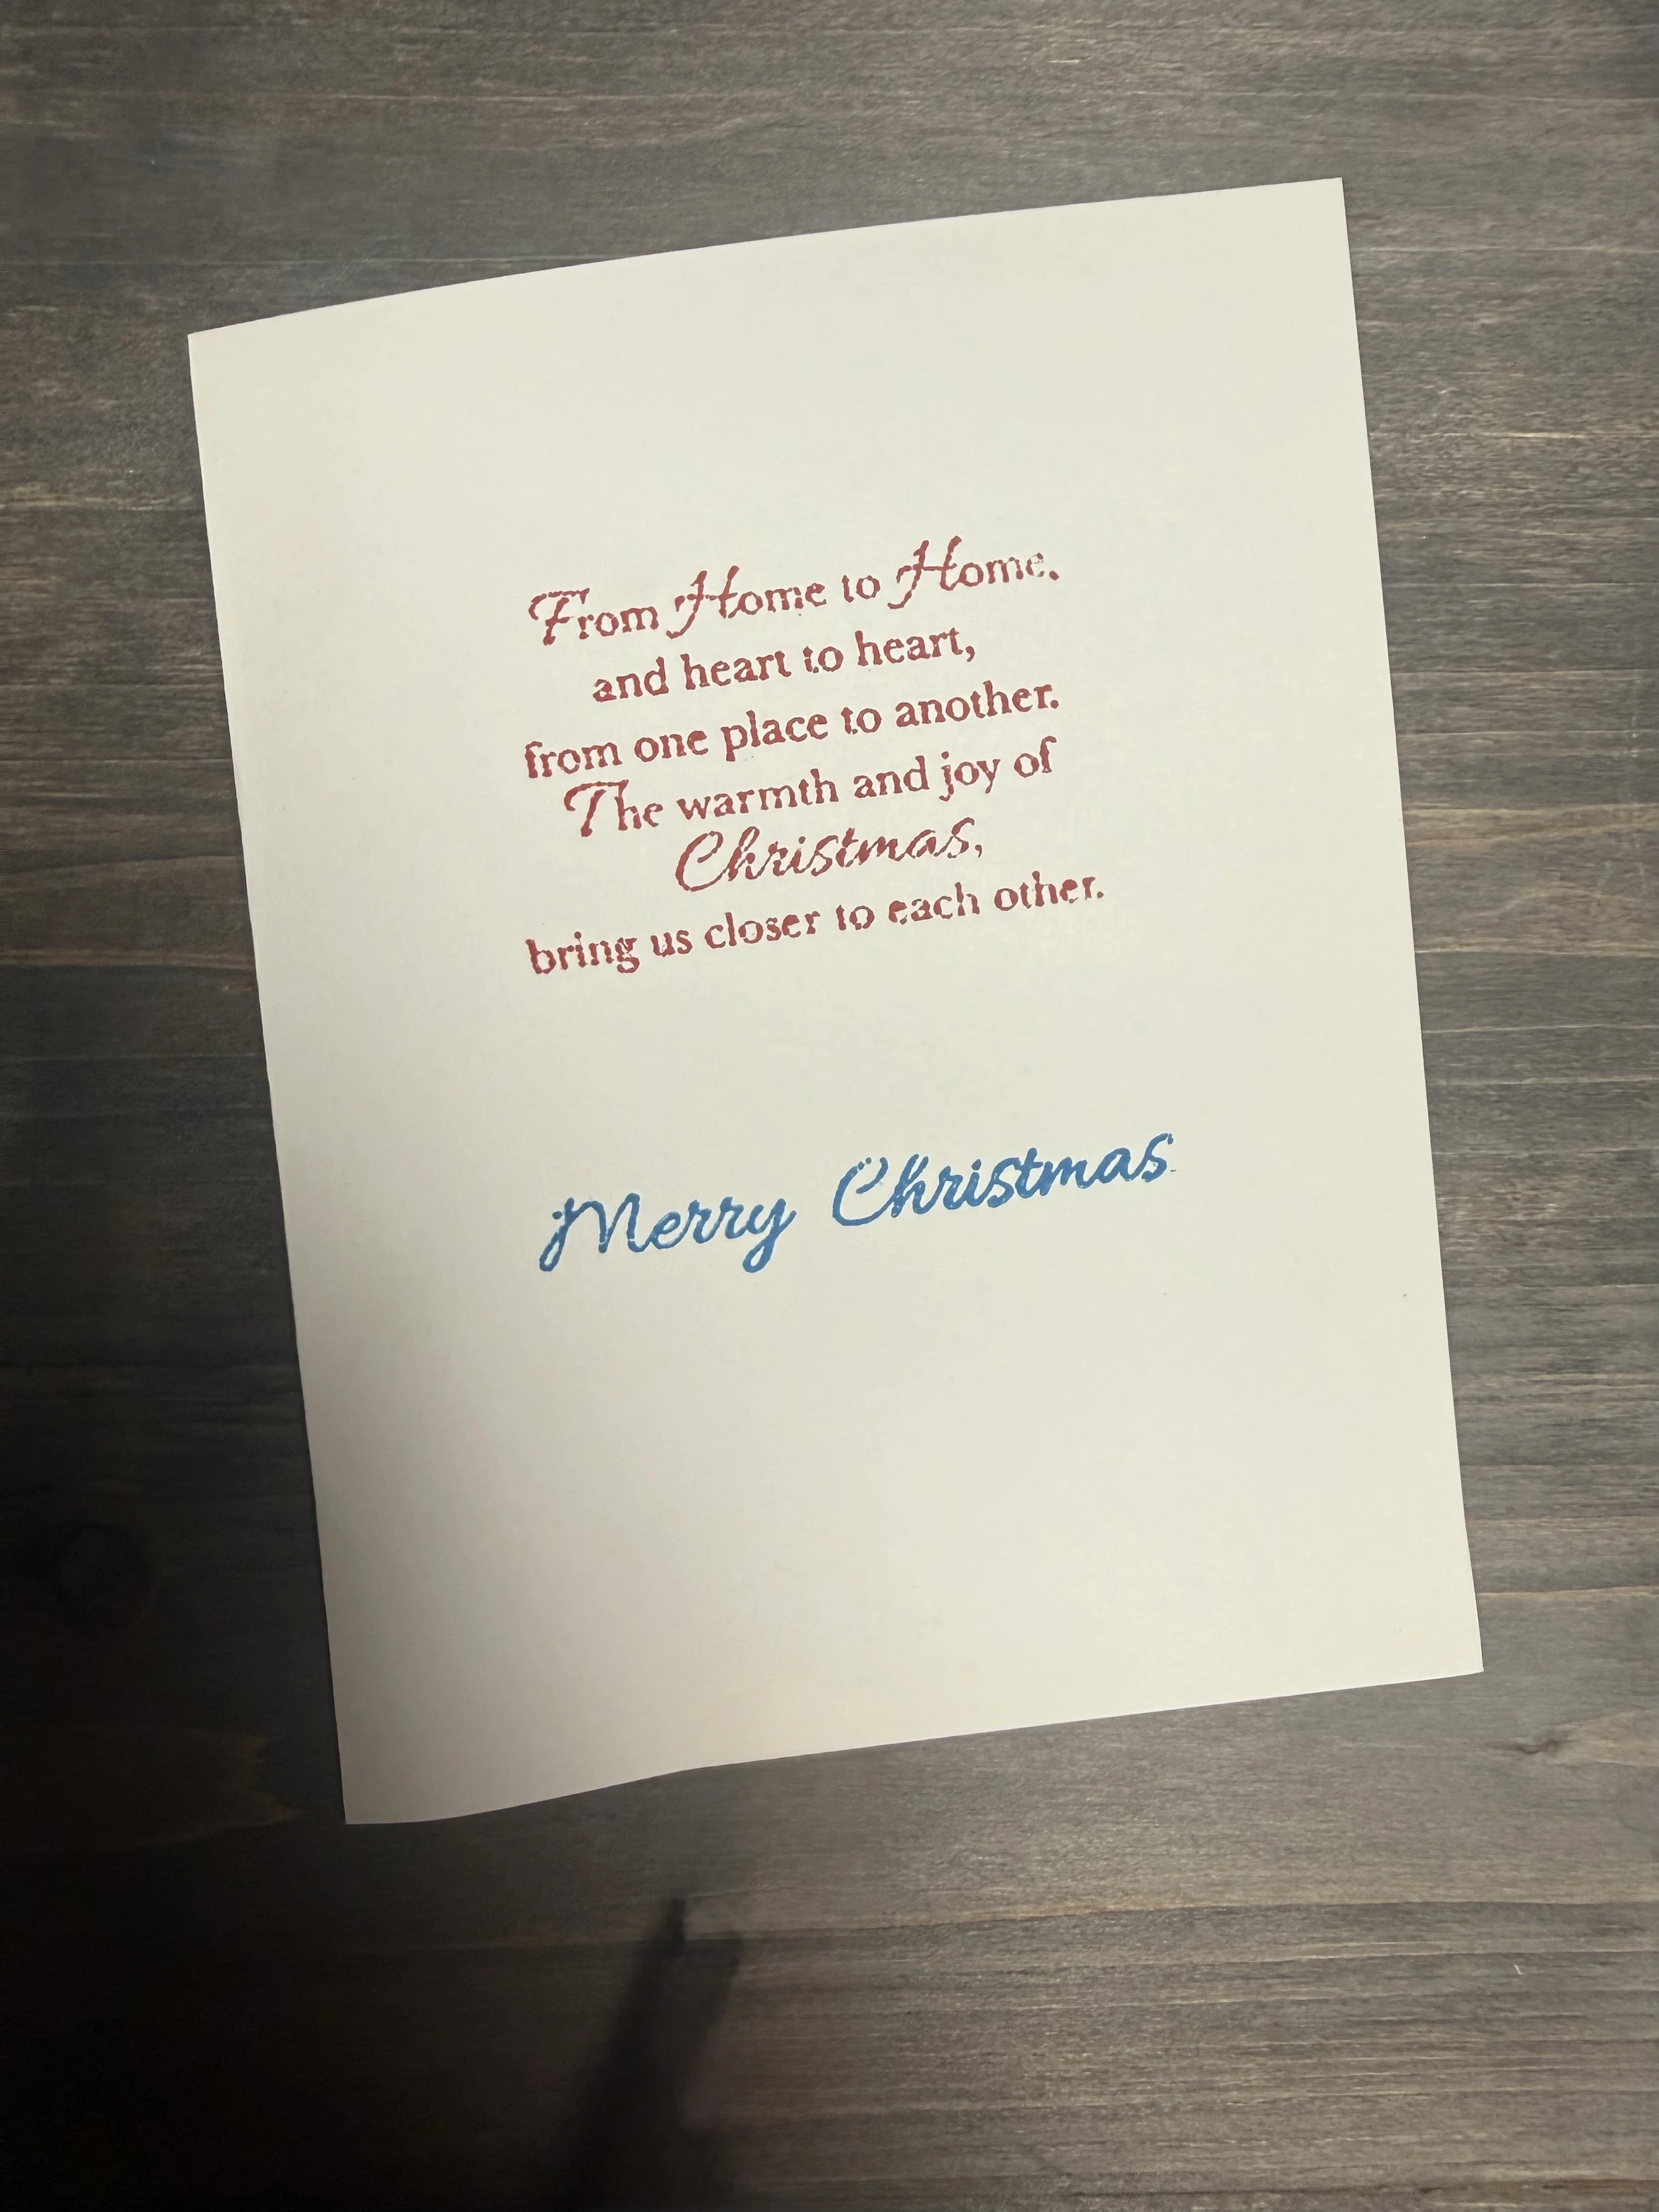 From Home to Home.
and heart to heart,
from one place to another.
The warmth and joy of
Christmas,
bring us closer to each other.
Merry Christmas